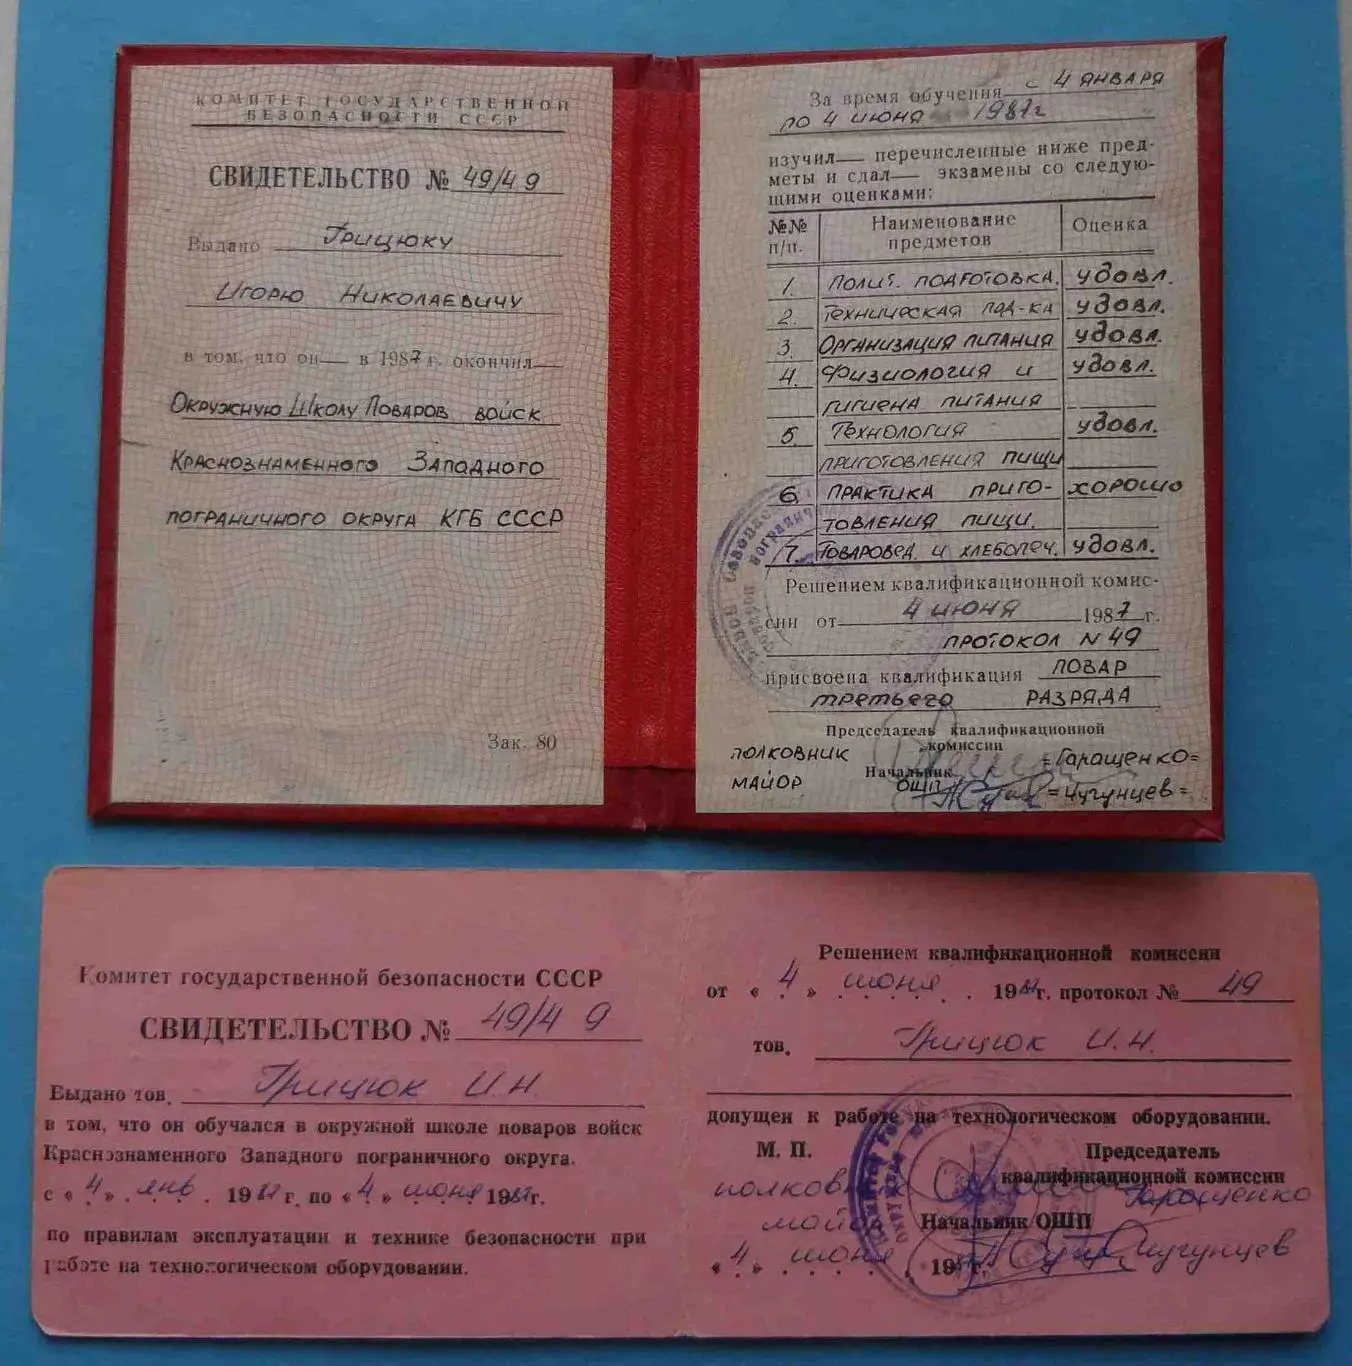 КОМИТЕТ ГОСУДАРСТВЕННОЙ
БЕЗОПАСНОСТИ СССР
СВИДЕТЕЛЬСТВО № 49/49
Выдано Грицюку
Игорю Николаевичу
в том, что он— в 1987 г. окончил—
Окружную Школу Поваров войск
Краснознаменного Западного
пограничного округа КГБ СССР
Зак. 80
За время обучения с 4 января
по 4 июня 1987г
изучил— перечисленные ниже пред-
меты и сдал— экзамены со следую-
щими оценками:
№№ Наименование Оценка
п/п. предметов
1. Полит. подготовка. удовл.
2. Техническая под-ка удовл.
3. Организация питания удовл.
4. Физиология и удовл.
гигиена питания
5. Технология удовл.
приготовления пищи
6. Практика приго- хорошо
товления пищи.
7. Товаровед. и хлебопеч. удовл.
Решением квалификационной комис-
сии от 4 июня 1987 г.
протокол N 49
присвоена квалификация повар
третьего разряда
Председатель квалификационной
комиссии
полковник =Гаращенко=
майор Начальник
ОШП =Чугунцев=
Комитет государственной безопасности СССР
СВИДЕТЕЛЬСТВО № 49/49
Выдано тов. Грицюк И.Н.
в том, что он обучался в окружной школе поваров войск
Краснознаменного Западного пограничного округа.
с «4» янв. 1987 г. по «4» июня 1987г.
по правилам эксплуатации и технике безопасности при
работе на технологическом оборудовании.
Решением квалификационной комиссии
от «4» июня 1987г. протокол № 49
тов. Грицюк И.Н.
допущен к работе на технологическом оборудовании.
М. П. Председатель
квалификационной комиссии
полковник Гаращенко
майор Начальник ОШП
«4» июня 1987г. Чугунцев